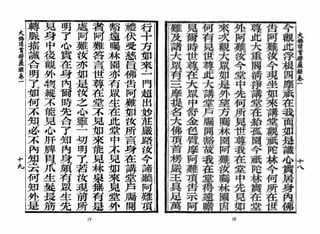 十八
今觀此浮根四塵祇在我面如是識心實居身內佛
告阿難汝今現坐如來講堂觀祇陀林今何所在世
尊此大重閣清淨講堂在給孤園今祇陀林實在堂
外阿難汝今堂中先何所見世尊我在堂中先見如
來次觀大眾如是外望方矚林園阿難汝矚林園因
何有見世尊此大講堂戶牖開豁故我在堂得遠瞻
見爾時世尊在大眾中舒金色臂摩阿難頂告示阿
難及諸大眾有三摩提名大佛頂首楞嚴王具足萬
行十方如來一門超出妙莊嚴路汝今諦聽阿難頂
禮伏受慈旨佛告阿難如汝所言身在講堂戶牖開
豁遠矚林園亦有眾生在此堂中不見如來見堂外
者阿難答言世尊在堂不見如來能見林泉無有是
處阿難汝亦如是汝之心靈一切明了若汝現前所
明了心實在身內爾時先合了知內身頗有眾生先
見身中後觀外物縱不能見心肝脾胃爪生髮長筋
轉脈搖誠合明了如何不知必不內知云何知外是
大佛頂首楞嚴經卷一
十九